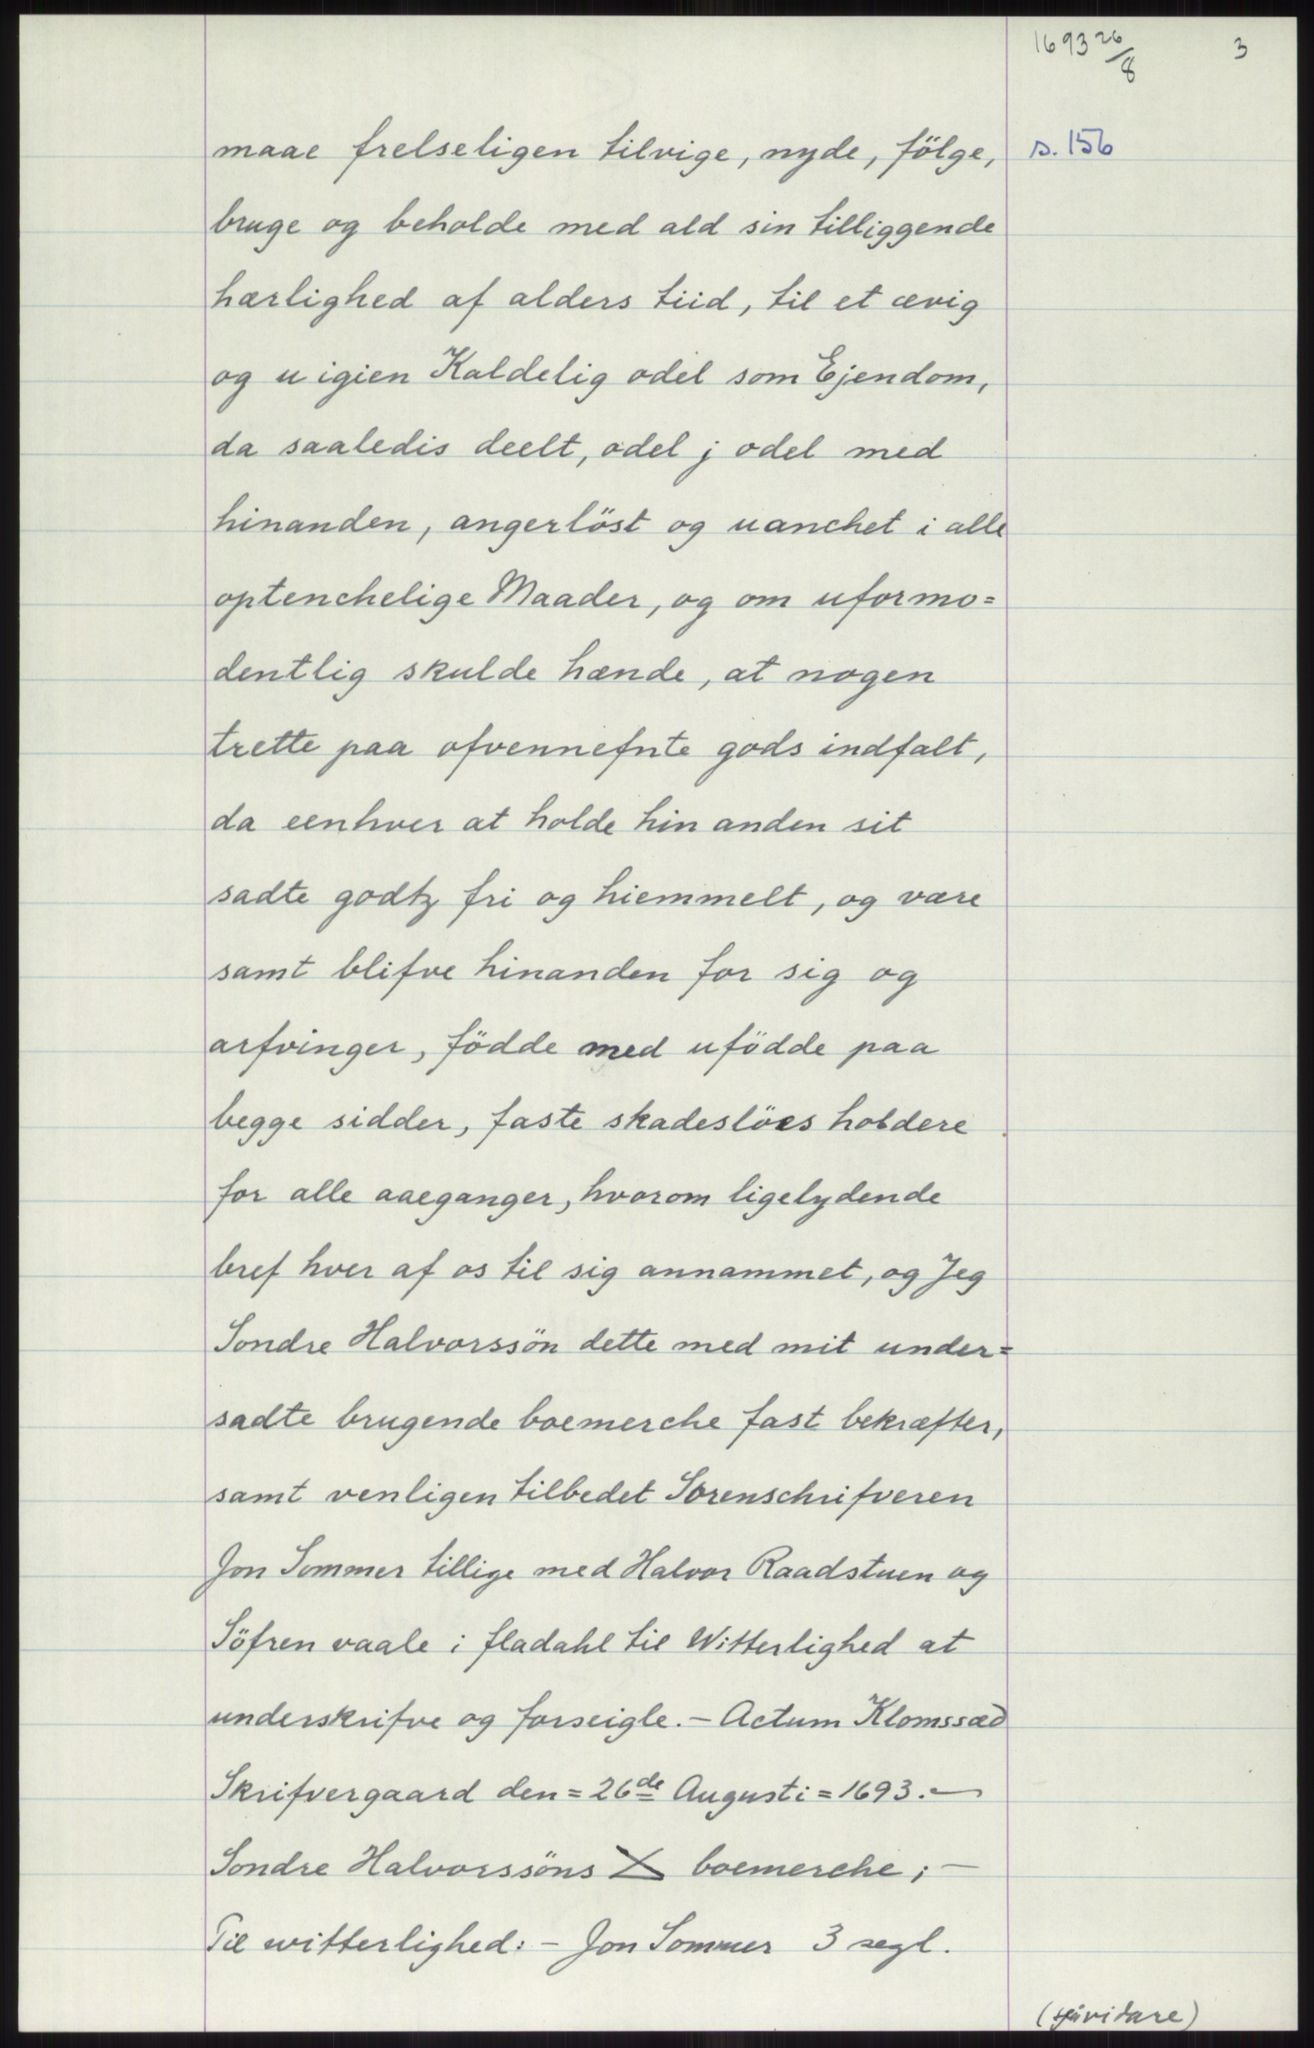 1693 26/8
3
s. 156
maae frelseligen tilvige, nyde, fölge,
bruge og beholde med ald sin tilliggende
hærlighed af alders tiid, til et ævig
og u igien Kaldelig odel som Ejendom,
da saaledis deelt, odel j odel med
hinanden, angerlöst og uanchet i alle
optenchelige Maader, og om uformo=
dentlig skulde hænde, at nogen
trette paa ofvennefnte gods indfalt,
da eenhver at holde hin anden sit
sadte godtz fri og hiemmelt, og være
samt blifve hinanden for sig og
arfvinger, födde med ufödde paa
begge sidder, faste skadeslöes holdere
for alle aaeganger, hvorom ligelydende
bref hver af os til sig annammet, og Jeg
Sondre Halvorssön dette med mit under=
sadte brugende boemerche fast bekræfter,
samt venligen tilbedet Sorenschrifveren
Jon Sommer tillige med Halvor Raadstuen og
Söfren vaale i fladahl til Witterlighed at
underskrifve og forseigle. – Actum Klomssæd
Skrifvergaard den = 26de Augusti = 1693. –
Sondre Halvorssöns boemerche; –
Til witterlighed: – Jon Sommer 3 segl.
(sjå vidare)